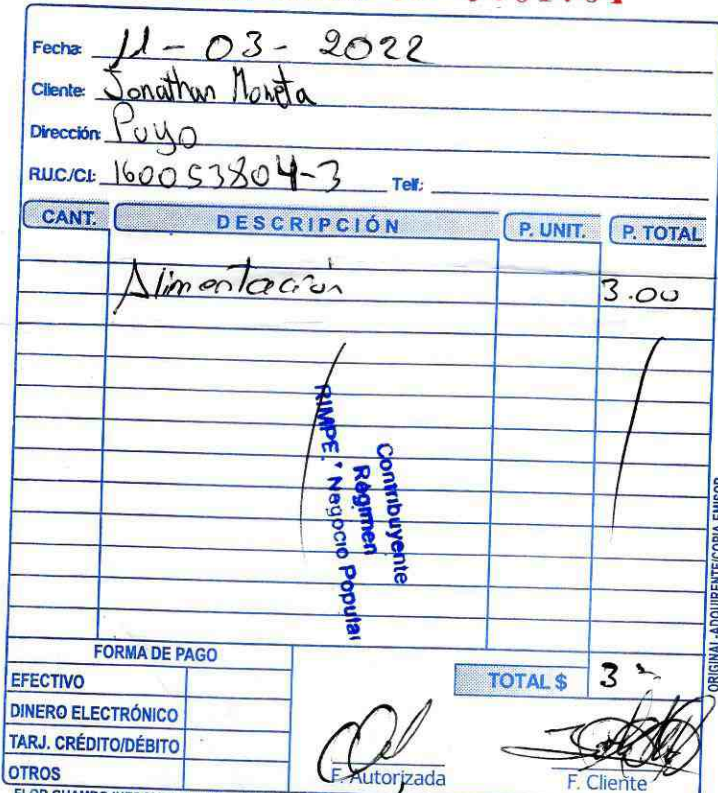 Fecha: 11-03-2022
Cliente: Jonathan
Dirección: Puyo
R.U.C./C.I.: 160053804-3 Telf.:
CANT. DESCRIPCIÓN P. UNIT. P. TOTAL
Alimentación 3.00
Contribuyente
Régimen
RIMPE. "Negocio Popular
FORMA DE PAGO
EFECTIVO
DINERO ELECTRÓNICO
TARJ. CRÉDITO/DÉBITO
OTROS
TOTAL $ 3
F. Autorizada
F. Cliente
ORIGINAL-ADQUIRENTE/COPIA-EMISOR